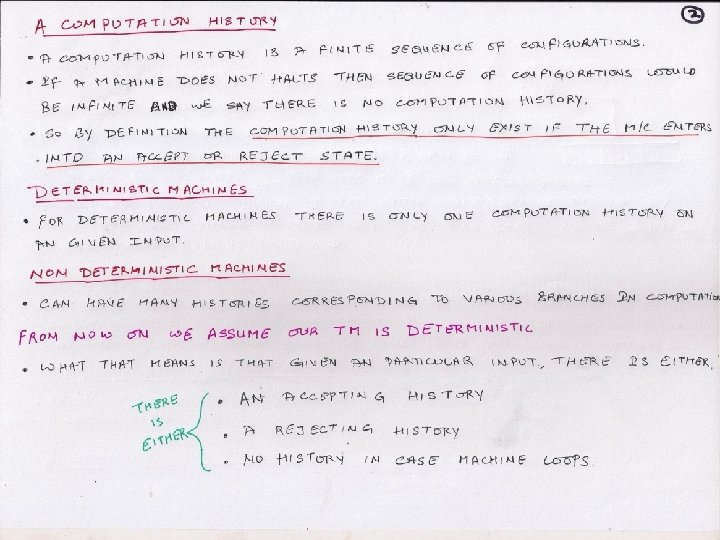 A COMPUTATION HISTORY
2
• A COMPUTATION HISTORY IS A FINITE SEQUENCE OF CONFIGURATIONS.
• IF A MACHINE DOES NOT HALTS THEN SEQUENCE OF CONFIGURATIONS WOULD
BE INFINITE AND WE SAY THERE IS NO COMPUTATION HISTORY.
• SO BY DEFINITION THE COMPUTATION HISTORY ONLY EXIST IF THE M/C ENTERS
- INTO AN ACCEPT OR REJECT STATE.
DETERMINISTIC MACHINES
• FOR DETERMINISTIC MACHINES THERE IS ONLY ONE COMPUTATION HISTORY ON
AN GIVEN INPUT.
NON DETERMINISTIC MACHINES
• CAN HAVE MANY HISTORIES CORRESPONDING TO VARIOUS BRANCHES IN COMPUTATION
FROM NOW ON WE ASSUME OUR TM IS DETERMINISTIC
• WHAT THAT MEANS IS THAT GIVEN AN PARTICULAR INPUT, THERE IS EITHER,
THERE
IS
EITHER
• AN ACCEPTING HISTORY
• A REJECTING HISTORY
• NO HISTORY IN CASE MACHINE LOOPS.